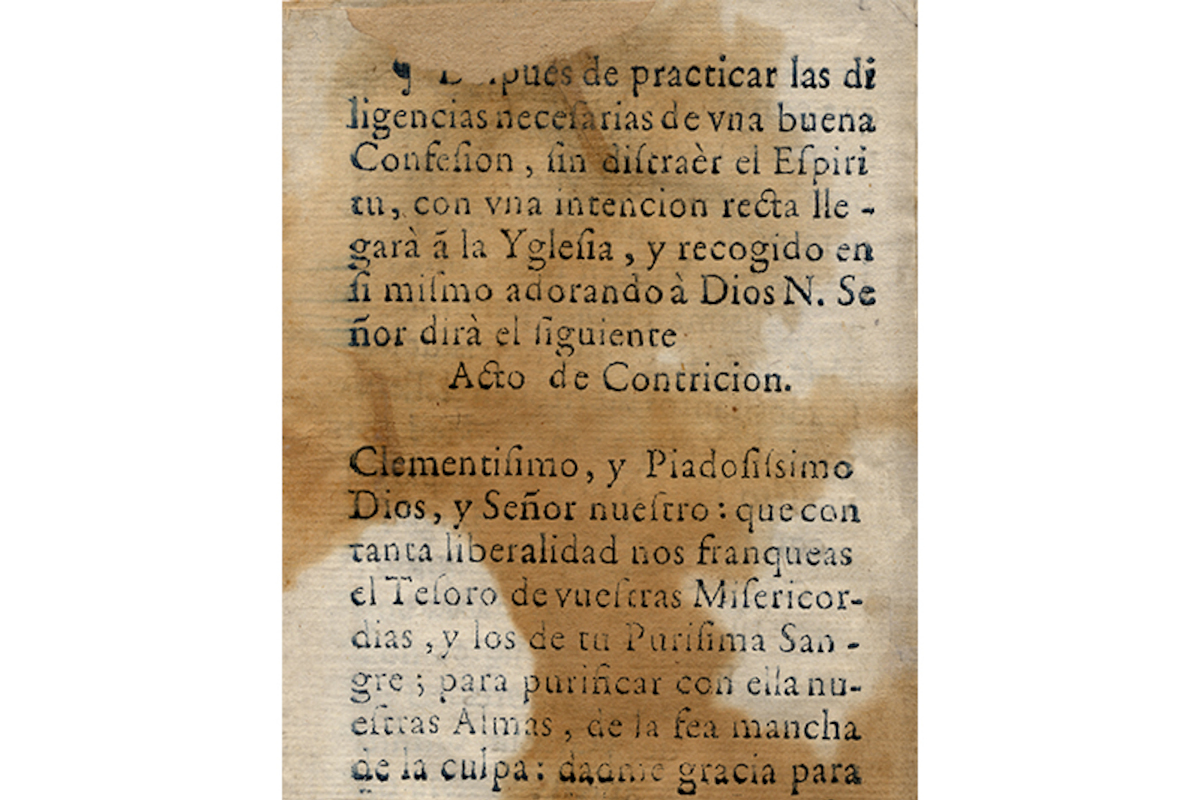 ¶ Despues de practicar las di
ligencias neceſarias de vna buena
Confeſion, ſin diſtraèr el Eſpiri
tu, con vna intencion recta lle-
garà ã la Ygleſia, y recogido en
ſi miſmo adorando à Dios N. Se
ñor dirà el ſiguiente
Acto de Contricion.
Clementiſimo, y Piadoſiſsimo
Dios, y Señor nueſtro: que con
tanta liberalidad nos franqueas
el Teſoro de vueſtras Miſericor-
dias, y los de tu Puriſima San-
gre; para purificar con ella nu-
eſtras Almas, de la fea mancha
de la culpa: dadme gracia para